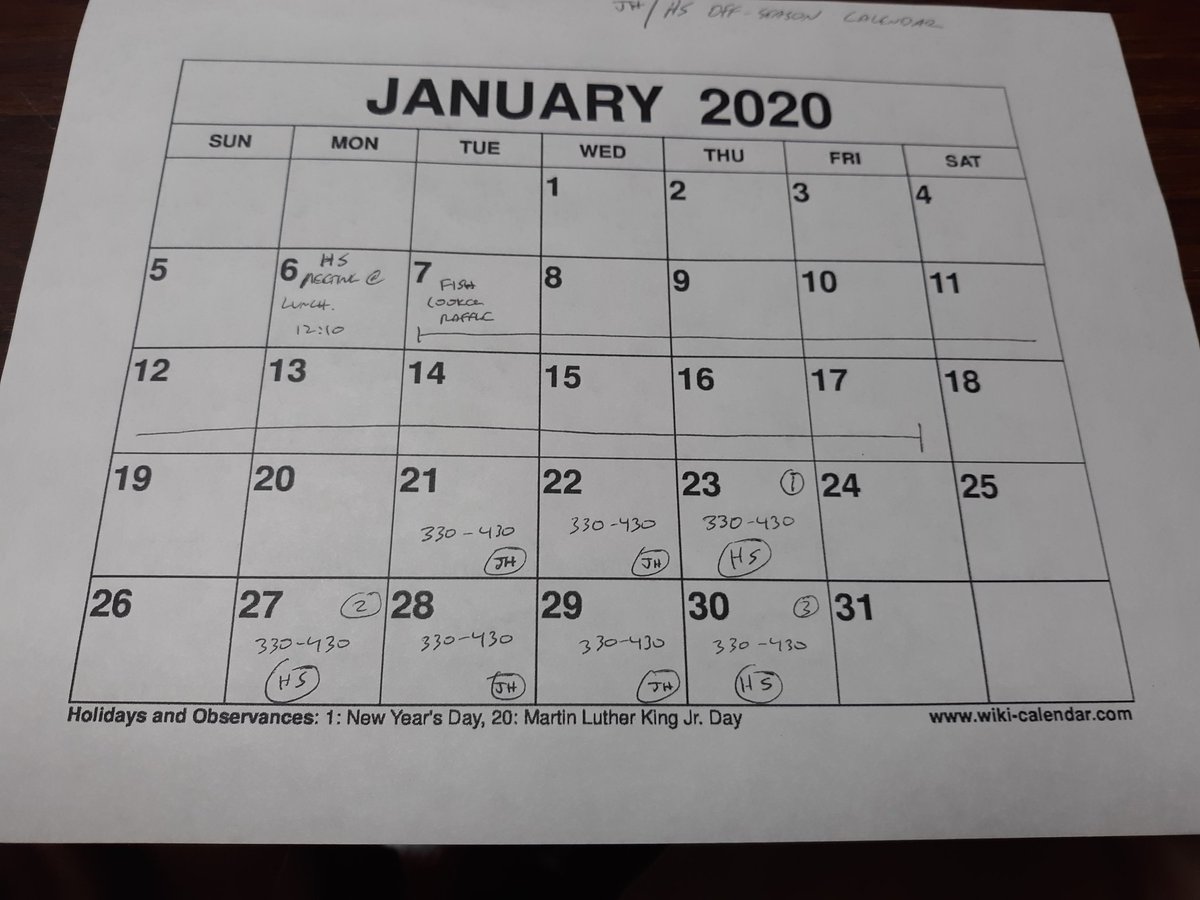 JH/HS OFF-SEASON CALENDAR
JANUARY 2020
SUN MON TUE WED THU FRI SAT
1 2 3 4
5 6 7 8 9 10 11
HS
MEETING @
LUNCH.
12:10
FISH
COOKER
RAFFLE
12 13 14 15 16 17 18
19 20 21 22 23 ① 24 25
330-430 330-430 330-430
JH JH HS
26 27 ② 28 29 30 ③ 31
330-430 330-430 330-430 330-430
HS JH JH HS
Holidays and Observances: 1: New Year's Day, 20: Martin Luther King Jr. Day www.wiki-calendar.com